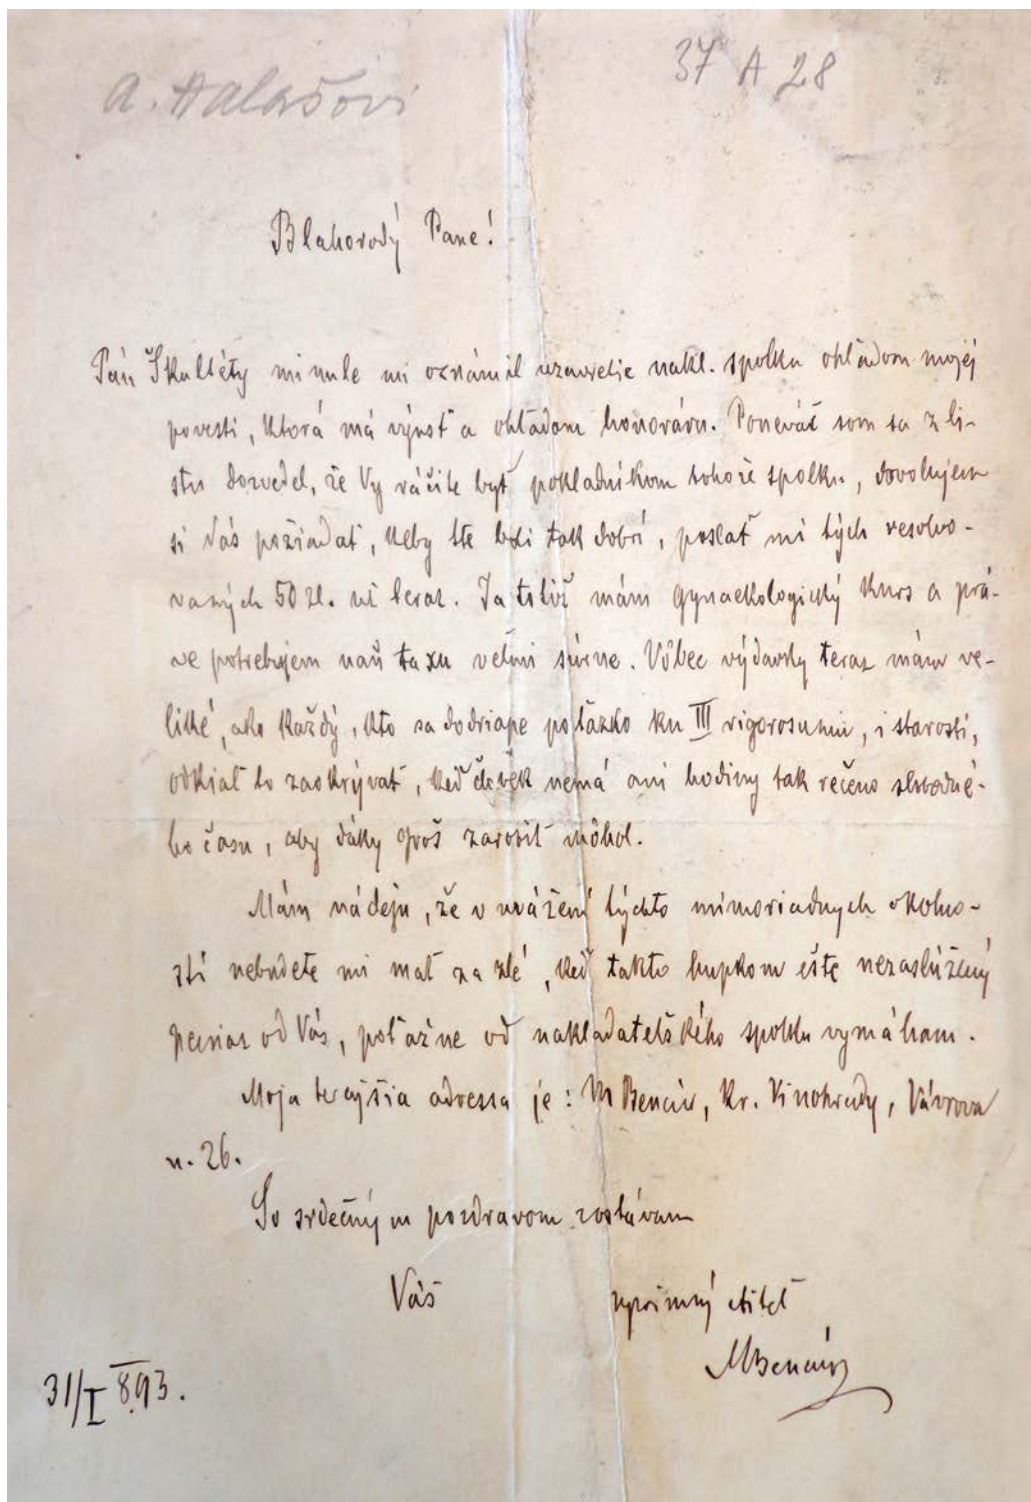 A. Halašovi
37 A 28
Blahorodý Pane!
Pán Škultéty minule mi oznámil uzavretie nakl. spolku ohľadom mojej
povesti, ktorá má výjsť a ohľadom honoráru. Poneváč som sa z li-
stu dozvedel, že Vy ráčite byť pokladníkom tohože spolku, dovoľujem
si Vás požiadať, keby ste boli tak dobrí, poslať mi tých resolvo-
vaných 50 zl. už teraz. Ja totiž mám gynaekologický kurs a prá-
ve potrebujem naň taxu veľmi súrne. Vôbec výdavky teraz mám ve-
liké, ako každý, kto sa dodriape poťažko ku III rigorosumu, i starosti,
odkiaľ to zaokrývať, keď človek nemá ani hodiny tak rečeno slobodné-
ho času, aby dáky groš zarobiť mohol.
Mám nádeju, že v uvážení týchto mimoriadnych okolno-
stí nebudete mi mať za zlé, keď takto hupkom ešte nezaslúžený
peniaz od Vás, poťažne od nakladateľského spolku vymáham.
Moja terajšia adressa je: M Bencúr, Kr. Vinohrady, Vávrova
n. 26.
So srdečným pozdravom zostávam
Váš úprimný ctiteľ
MBencúr
31/I 893.